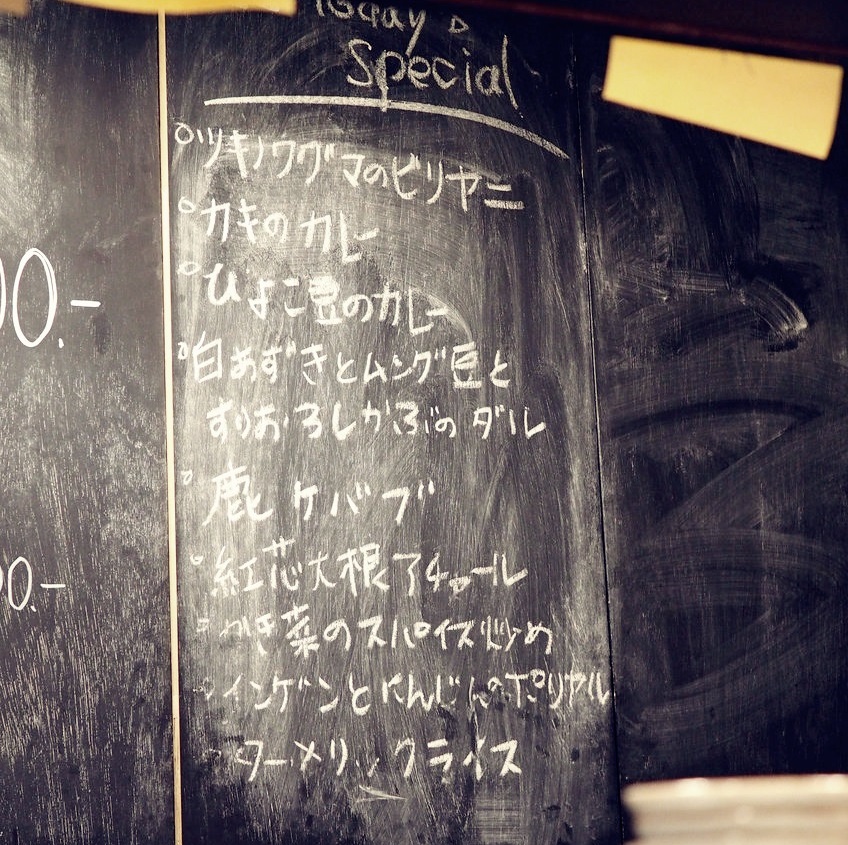 Today's
Special
○ツキノワグマのビリヤニ
○カキのカレー
○ひよこ豆のカレー
○白あずきとムング豆と
すりおろしかぶのダル
○鹿ケバブ
○紅芯大根アチャール
○かき菜のスパイス炒め
○インゲンとにんじんのポリヤル
ターメリックライス
00.-
00.-